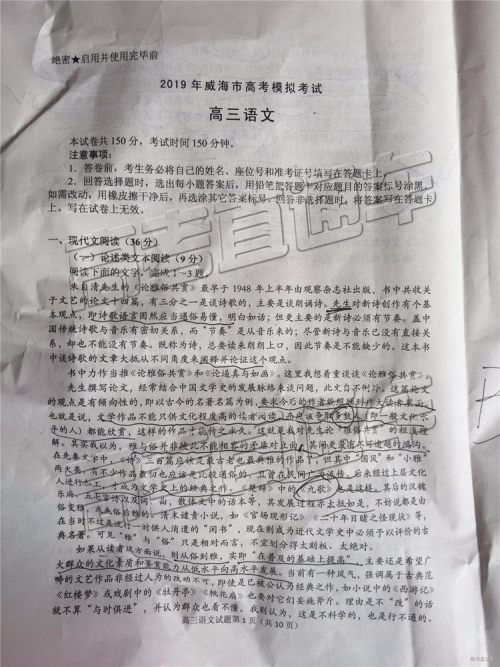 绝密★启用并使用完毕前
2019年威海市高考模拟考试
高三语文
本试卷共150分，考试时间150分钟。
注意事项：
1．答卷前，考生务必将自己的姓名、座位号和准考证号填写在答题卡上。
2．回答选择题时，选出每小题答案后，用铅笔把答题卡对应题目的答案标号涂黑。
如需改动，用橡皮擦干净后，再选涂其它答案标号。回答非选择题时，将答案写在答题卡
上。写在试卷上无效。
一、现代文阅读（36分）
（一）论述类文本阅读（9分）
阅读下面的文字，完成1~3题
朱自清先生的《论雅俗共赏》最早于1948年上半年由观察杂志出版，书中共收关
于文艺的论文十四篇，有三分之一是谈诗歌的，主要是谈朗诵诗。先生对新诗创作有个基
本观点，即诗歌语言固然应当通俗易懂，明白如话；但更主要的是新诗必须有节奏。盖中
国传统诗歌与音乐有密切关系，而“节奏”是从音乐来的；尽管新诗与音乐已没有直接关
系，却也不能没有节奏。既称为诗，总要读来朗朗上口，因此节奏是不能缺少的。这本书
中谈诗歌的文章大抵从不同角度来阐释并论证这个观点。
书中力作当推《论雅俗共赏》和《论逼真与如画》。这里我想着重谈谈《论雅俗共赏》。
先生撰写论文，经常结合中国文学史的发展脉络来谈问题，此文自不例外。这篇论文
的观点是有倾向性的，即以古今的名著名篇为例，要求今后的作者
也就是说，文学作品不能只供文化程度高的读者阅读，而应该争取多数（即一般文化水
乎的人）都能欣赏，这样的作品才能传之永久。这就是我对先生论“雅俗共赏”的粗浅理
解。其实我以为，雅与俗并非彼此不能相容的矛盾对立面，
在先秦文学中，《诗》三百篇应该是最古老也最典雅的作品了，但其中“国风”和“小雅”
两大类，有不少作品最初也应该是比较通俗的，且曾在民间广为流传。后来经过上层文化
人进行加工，才成为文学史上的经典之作。《楚辞》中的《九歌》也是这样。其后的汉魏
乐府、五七言诗以及词一面，数体文中的话本等，其发展过程亦大抵如是，不妨说都是由
俗变雅，或由俗
在当时不过是流行一时供人消遣的“闲书”，现在则成为近代文学史中必须予以评价的古
典名著。可见“雅”与“俗”只是相对而言，不宜划分得太刻板、太绝对。
如果从读者这方面说，则从俗到雅，实即“在普及的基础上提高”，主要还是希望广
大群众的文化素质和鉴赏能力从低水平向高水平发展。当前有一种风气，强调属于古典范
畴的文艺作品非经过人为的改动不可，即使是已被公认为经典之作，如小说中的《西游记》
《红楼梦》或戏剧中的《牡丹亭》《桃花扇》也要对它们妄施斧斤。理由是不“改”的话
就不算“与时俱进”，并认为群众也看不懂。我则认为，这是不科学的，也是行不通的。
高三语文试题第1页（共10页）
高考直通车